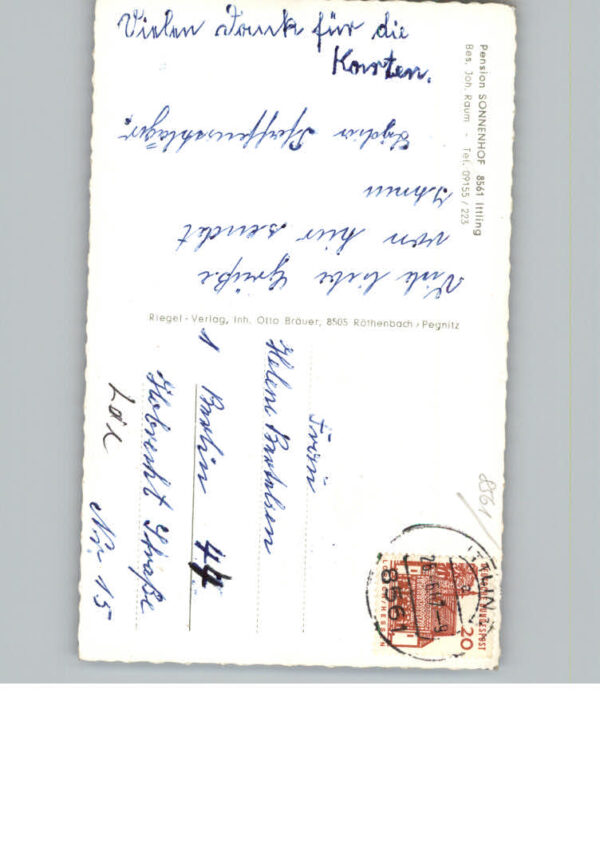 Pension SONNENHOF 8561 Ittling
Bes. Joh. Raum - Tel. 09155/223
Viele liebe Grüße
von hier sendet
Ihnen
Vielen Dank für die
Karten.
Riegel-Verlag, Inh. Otto Bräuer, 8505 Röthenbach/Pegnitz
Frau
Helene Bertelsen
1 Berlin 44
Hobrecht Straße
Nr. 15
8561
8561
20
DEUTSCHE BUNDESPOST